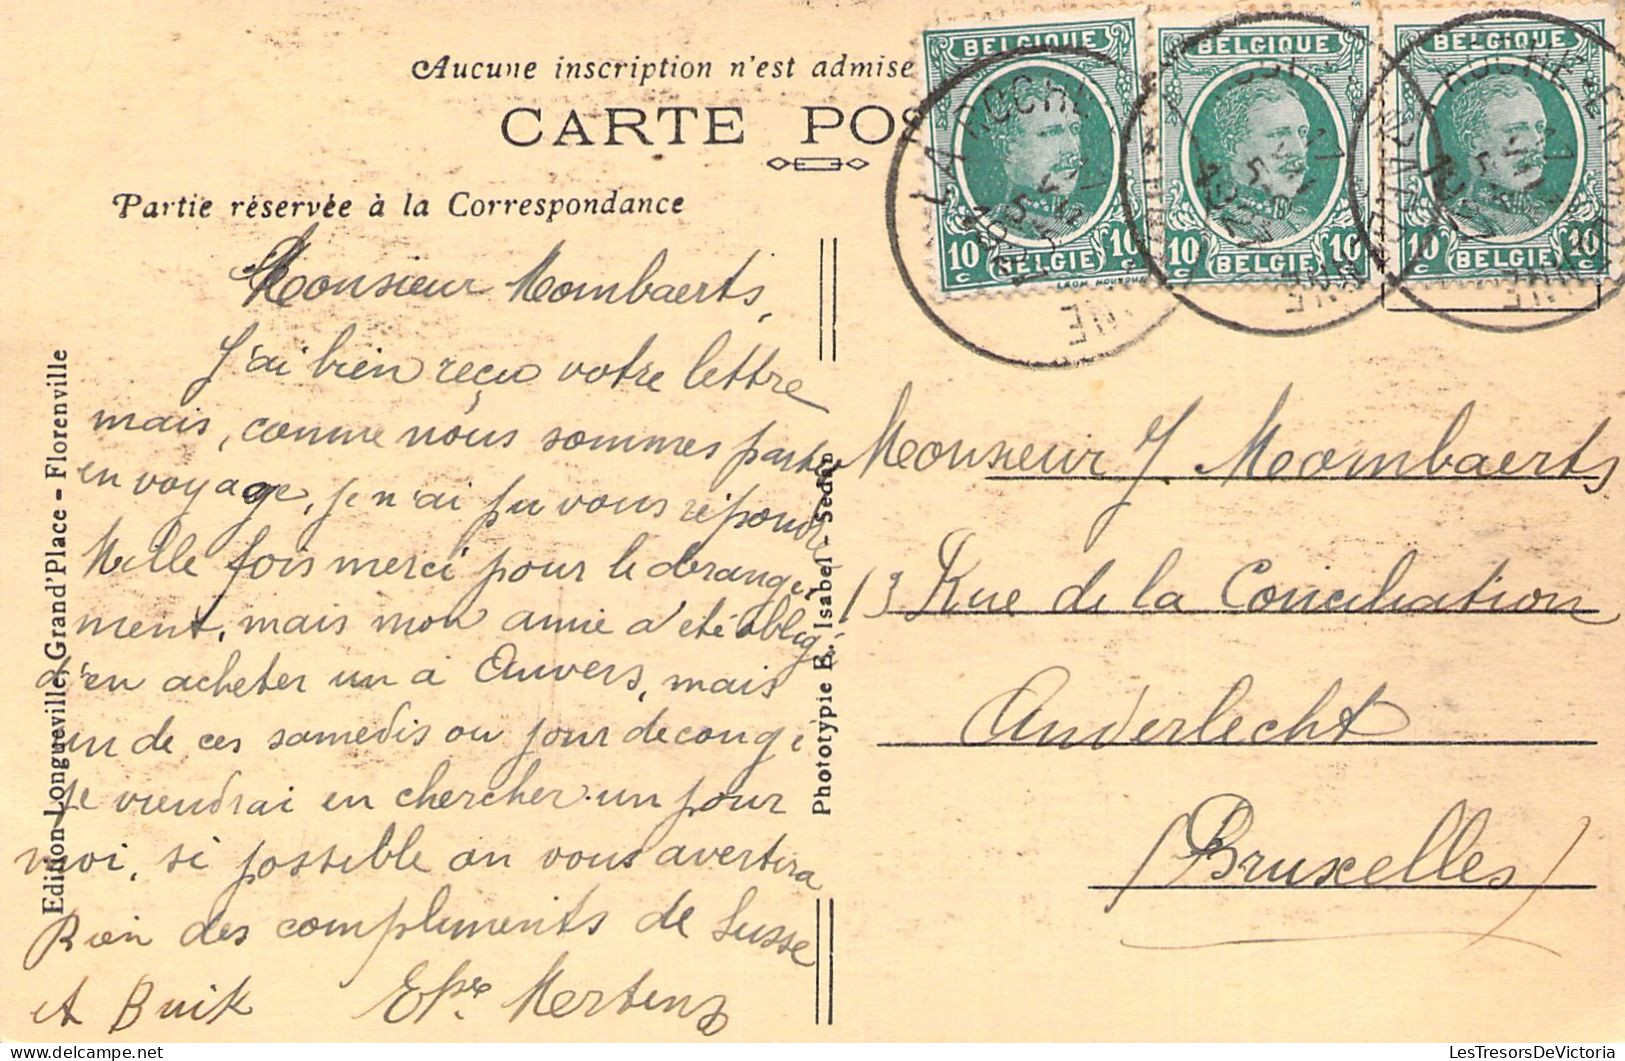 Aucune inscription n'est admise
CARTE POS
Partie réservée à la Correspondance
Monsieur Mombaerts,
J'ai bien reçu votre lettre
mais, comme nous sommes partis
en voyage, je n'ai pu vous répondre
Mille fois merci pour le derange
ment, mais mon amie a été oblig
d'en acheter un à Anvers, mais
un de ces samedis ou jour de congé
je viendrai en chercher un pour
moi, si possible on vous avertira
Bien des compliments de Susse
et Buik Epse Mertens
Edition Longueville, Grand'Place - Florenville
Phototypie B. Isabel - Sedan
BELGIQUE
10 c 10 c
BELGIE
BELGIQUE
10 c 10 c
BELGIE
BELGIQUE
10 c 10 c
BELGIE
LA ROCHE
Monsieur J. Mombaerts
13 Rue de la Conciliation
Anderlecht
(Bruxelles)
LesTresorsDeVictoria.com